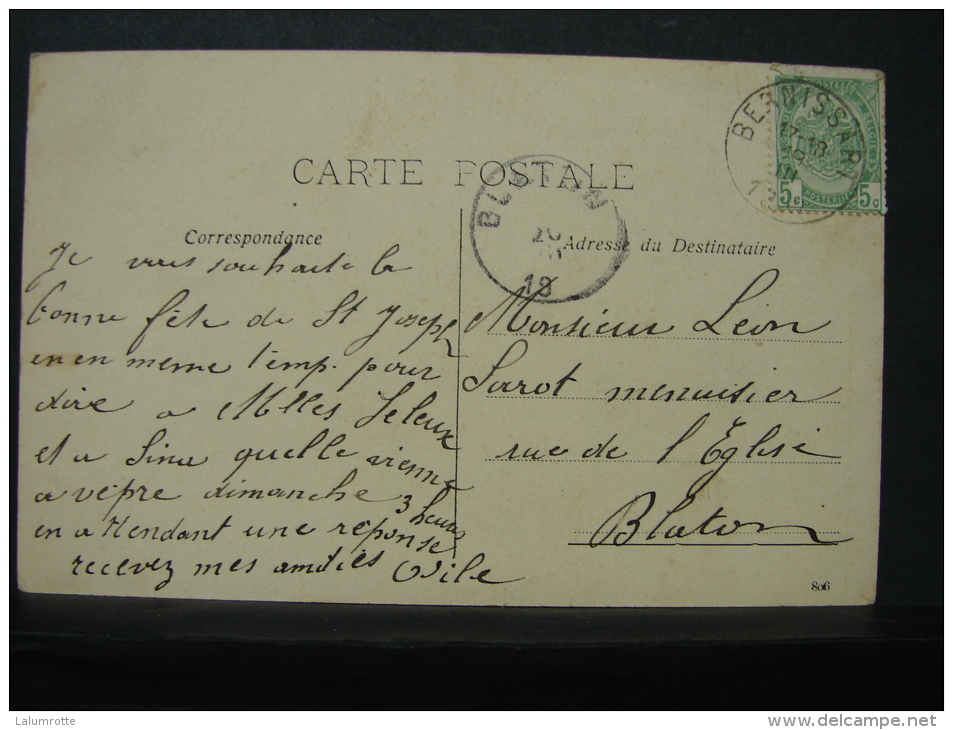 CARTE POSTALE
BERNISSART
18
III
BLATON
20
13
5c
5c
Correspondance
Je vous souhaite la
bonne fête de St Joseph
en en meme temp. pour
dire a Mlles Leleux
et a Lina quelle vienne
a vêpre dimanche 3 heure
en attendant une réponse
recevez mes amitiés Odile
Adresse du Destinataire
Monsieur Léon
Sarot menuisier
rue de l'Eglise
Blaton
806
Lalumrotte
delcampe.net